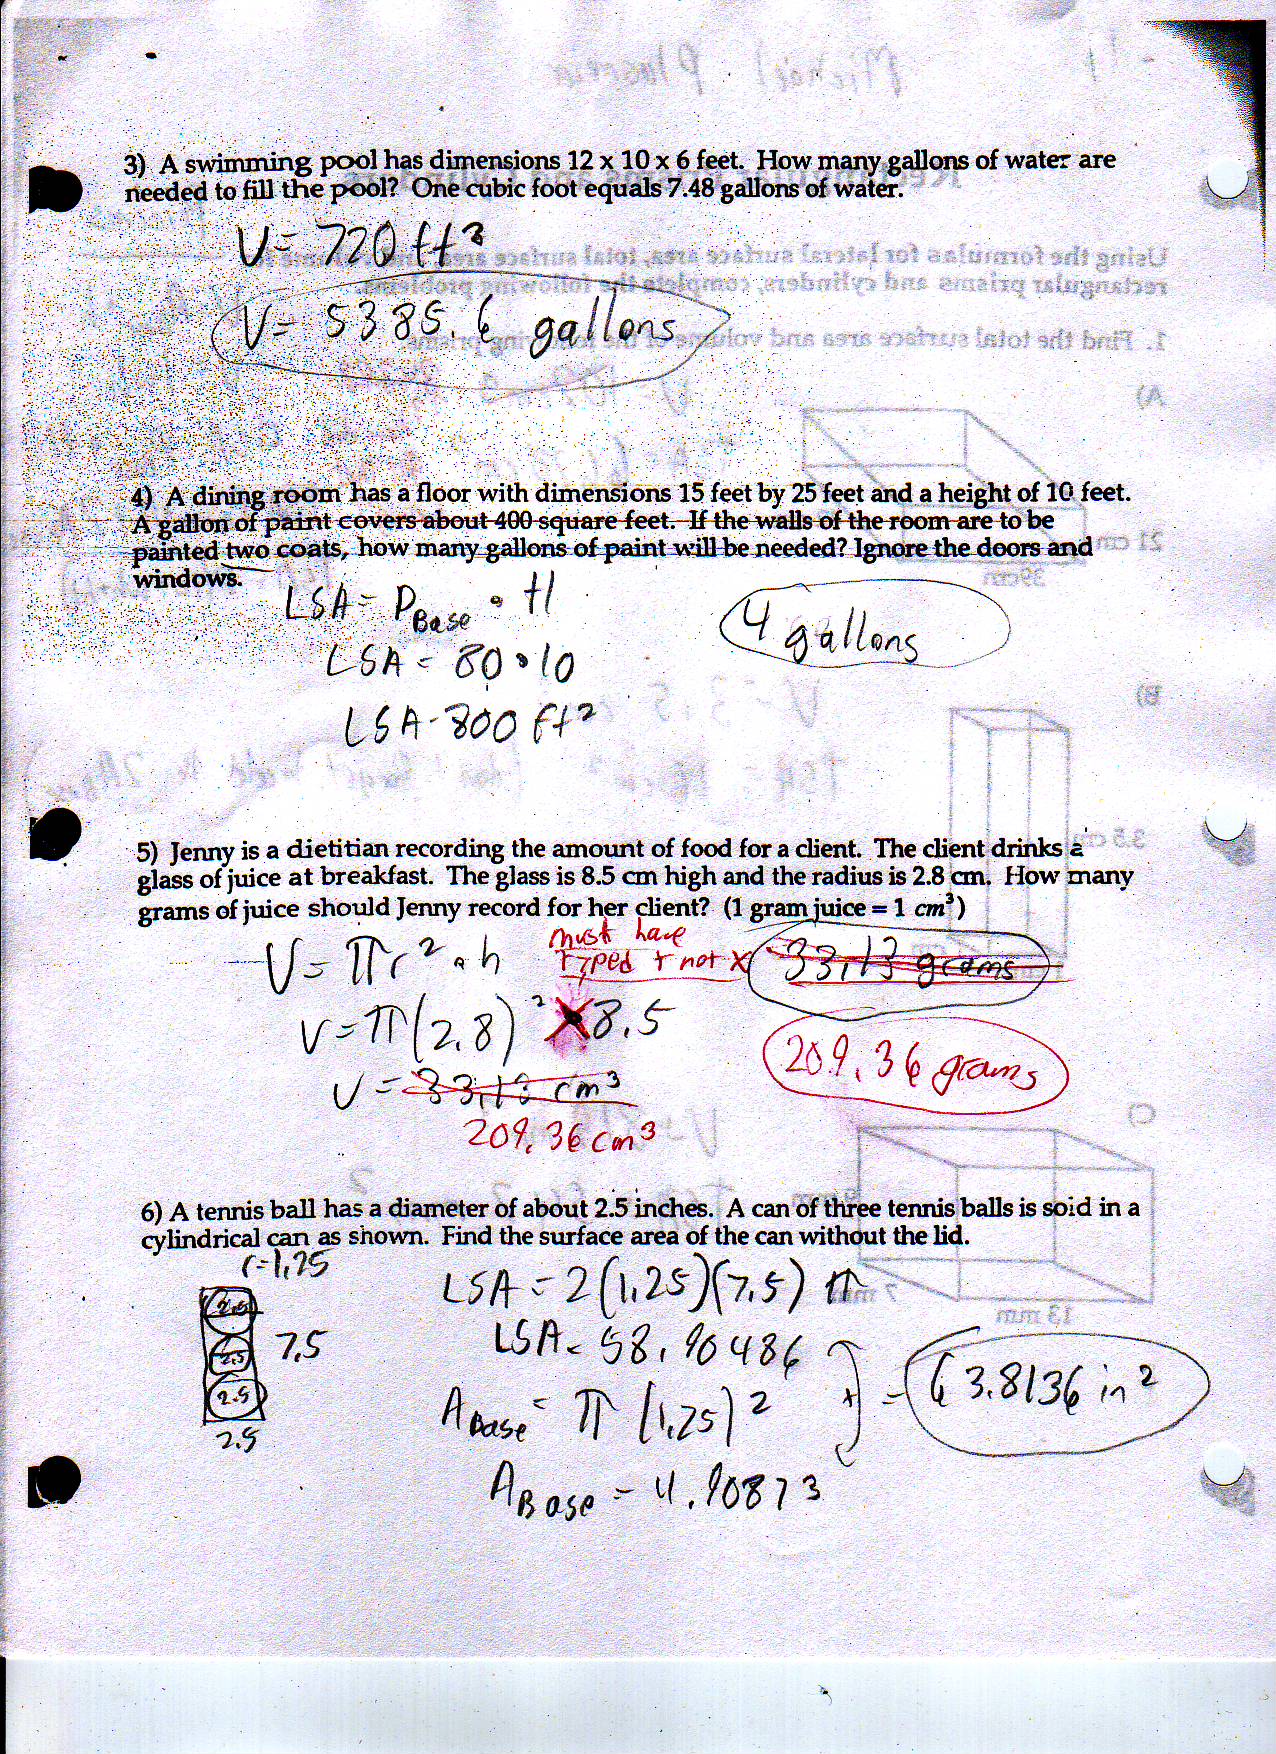 3) A swimming pool has dimensions 12 x 10 x 6 feet. How many gallons of water are
needed to fill the pool? One cubic foot equals 7.48 gallons of water.
V= 720 ft³
V= 5385.6 gallons
4) A dining room has a floor with dimensions 15 feet by 25 feet and a height of 10 feet.
A gallon of paint covers about 400 square feet. If the walls of the room are to be
painted two coats, how many gallons of paint will be needed? Ignore the doors and
windows.
LSA= P Base • H
4 gallons
LSA = 80 • 10
LSA - 800 ft²
5) Jenny is a dietitian recording the amount of food for a client. The client drinks a
glass of juice at breakfast. The glass is 8.5 cm high and the radius is 2.8 cm. How many
grams of juice should Jenny record for her client? (1 gram juice = 1 cm³)
must have
V= πr² • h
typed + not X
33.13 grams
V=π(2.8)² X8.5
209.36 grams
V = 33.13 cm³
209.36 cm³
6) A tennis ball has a diameter of about 2.5 inches. A can of three tennis balls is soid in a
cylindrical can as shown. Find the surface area of the can without the lid.
r=1.25
LSA = 2(1.25)(7.5) π
2.5
2.5
2.5
7.5
2.5
LSA= 58.90486
A Base = π (1.25)²
+
= 63.8136 in²
A Base = 4.90873